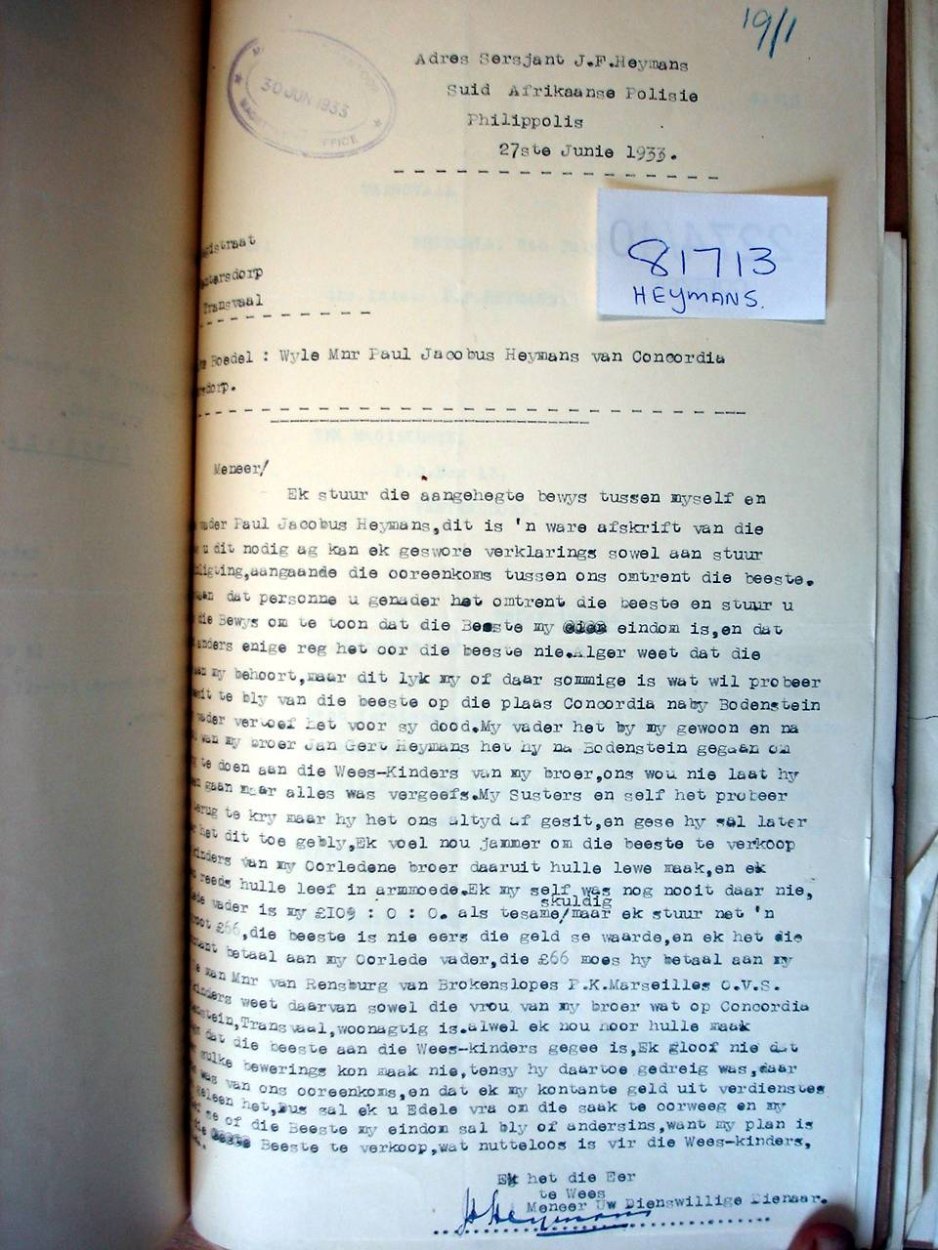 19/1
30 JUN 1933
Adres Sersjant J.F.Heymans
Suid Afrikaanse Polisie
Philippolis
27ste Junie 1933.
81713
HEYMANS.
Transvaal
Boedel : Wyle Mnr Paul Jacobus Heymans van Concordia
Meneer/
Ek stuur die aangehegte bewys tussen myself en
Paul Jacobus Heymans,dit is 'n ware afskrift van die
u dit nodig ag kan ek geswore verklarings sowel aan stuur
aangaande die ooreenkoms tussen ons omtrent die beeste.
dat personne u genader het omtrent die beeste en stuur u
die Bewys om te toon dat die Beeste my eindom is,en dat
anders enige reg het oor die beeste nie.Alger weet dat die
my behoort,maar dit lyk my of daar sommige is wat wil probeer
te bly van die beeste op die plaas Concordia naby Bodenstein
vader vertoef het voor sy dood.My vader het by my gewoon en na
van my broer Jan Gert Heymans het hy na Bodenstein gegaan om
te doen aan die Wees-Kinders van my broer,ons wou nie laat hy
gaan maar alles was vergeefs.My Susters en self het probeer
te kry maar hy het ons altyd af gesit,en gese hy sal later
het dit toe gebly,Ek voel nou jammer om die beeste te verkoop
van my Oorledene broer daaruit hulle lewe maak,en ek
reeds hulle leef in armmoede.Ek my self was nog nooit daar nie,
skuldig
vader is my £109 : 0 : 0. als tesame/maar ek stuur net 'n
£66,die beeste is nie eers die geld se waarde,en ek het die
betaal aan my Oorlede vader,die £66 moes hy betaal aan my
Mnr van Rensburg van Brokenslopes P.K.Marseilles O.V.S.
weet daarvan sowel die vrou van my broer wat op Concordia
Transvaal,woonagtig is.alwel ek nou hoor hulle maak
dat die beeste aan die Wees-kinders gegee is,Ek gloof nie dat
sulke bewerings kon maak nie,tensy hy daartoe gedreig was,daar
was van ons ooreenkoms,en dat ek my kontante geld uit verdienstes
geleen het,Dus sal ek u Edele vra om die saak te oorweeg en my
se of die Beeste my eindom sal bly of andersins,want my plan is
Beeste te verkoop,wat nutteloos is vir die Wees-kinders,
Ek het die Eer
te Wees
Meneer Uw Dienswillige Dienaar.